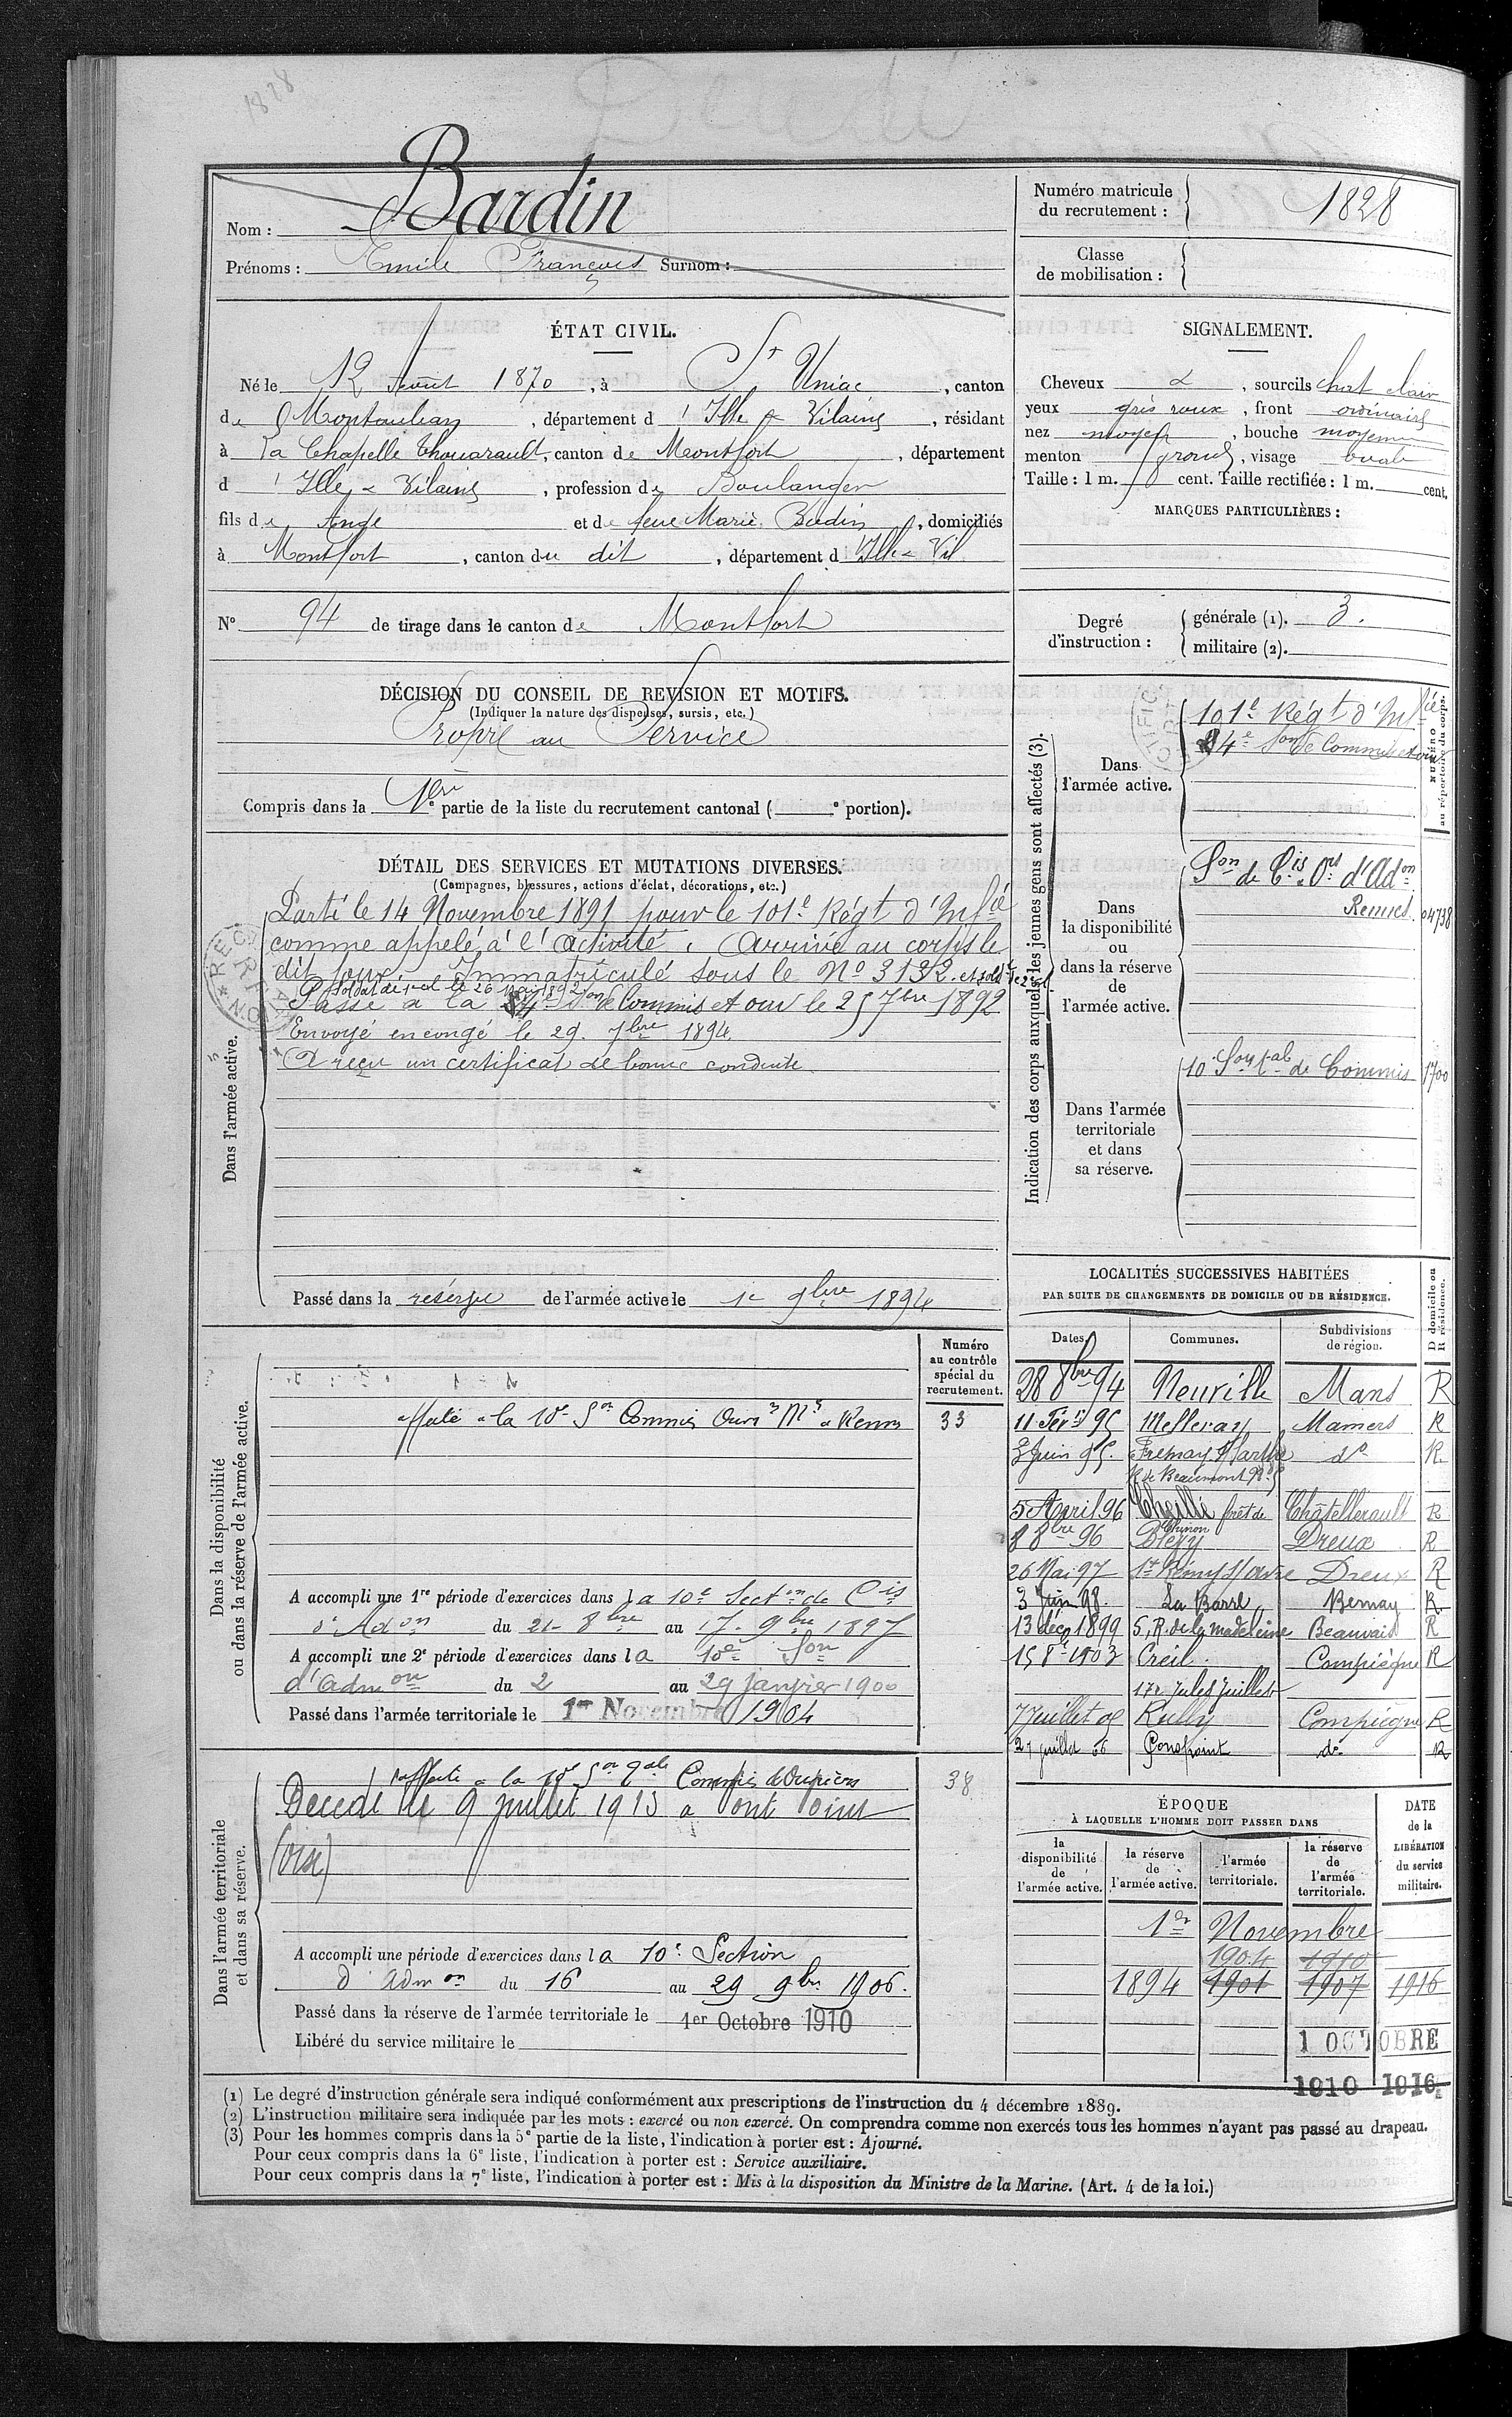 1828
Décédé
Nom : Bardin
Prénoms : Emile François Surnom :
Numéro matricule
du recrutement : 1828
Classe
de mobilisation :
ÉTAT CIVIL.
Né le 12 Août 1870, à St Uniac, canton
de Montauban, département d'Ille & Vilaine, résidant
à La Chapelle Thouarault, canton de Montfort, département
d'Ille & Vilaine, profession de Boulanger
fils de Ange et de feue Marie, domiciliés
à Montfort, canton du dit, département d'Ille & Vil
N° 94 de tirage dans le canton de Montfort
SIGNALEMENT.
Cheveux &, sourcils chat clair
yeux gris roux, front ordinaire
nez moyen, bouche moyenne
menton rond, visage ovale
Taille : 1 m. cent. Taille rectifiée : 1 m. cent.
MARQUES PARTICULIÈRES :
Degré
d'instruction :
générale (1). 3.
militaire (2).
DÉCISION DU CONSEIL DE REVISION ET MOTIFS.
(Indiquer la nature des dispenses, sursis, etc.)
Propre au Service
Compris dans la 1ère partie de la liste du recrutement cantonal ( e portion).
DÉTAIL DES SERVICES ET MUTATIONS DIVERSES.
(Campagnes, blessures, actions d'éclat, décorations, etc.)
Dans l'armée active.
Parti le 14 Novembre 1891 pour le 101e Régt d'Infie
comme appelé à l'activité. Arrivé au corps le
dit jour. Immatriculé sous le No 3132. et soldt de 2e cl.
Soldat de 1re cl. le 26 Mai 1892
Passé à la 4e Son de Commis et ouv le 25 7bre 1892
Envoyé en congé le 29. 7bre 1894.
A reçu un certificat de bonne conduite
Passé dans la réserve de l'armée active le 1e 9bre 1894
Indication des corps auxquels les jeunes gens sont affectés (3).
NUMÉRO
au répertoire du corps.
Dans
l'armée active.
101e Régt d'Infie
4e Son de Commis et ouv
Dans
la disponibilité
ou
dans la réserve
de
l'armée active.
Son de Cis Ors d'Adon
Rennes. 04738
Dans l'armée
territoriale
et dans
sa réserve.
10 Son tale de Commis 1700
Dans la disponibilité
ou dans la réserve de l'armée active.
Numéro
au contrôle
spécial du
recrutement.
affecté à la 10e Son Commis Ouvrs Mres à Rennes 33
A accompli une 1re période d'exercices dans la 10e Secton de Cis
d'Adon du 21 8bre au 17 9bre 1897
A accompli une 2e période d'exercices dans la 10e Son
d'Admon du 2 au 29 janvier 1900
Passé dans l'armée territoriale le 1er Novembre 1904
LOCALITÉS SUCCESSIVES HABITÉES
PAR SUITE DE CHANGEMENTS DE DOMICILE OU DE RÉSIDENCE.
Dates. Communes. Subdivisions de région. D domicile ou R résidence.
28 8bre 94 Neuville Mans R
11 Févr 95 Melleray Mamers R
3 Juin 95. Fresnay s/Sarthe do R.
R de Beaumont
5 Avril 96 Cheillé Châtellerault R
Chinon
8 8bre 96 Blévy Dreux R
26 Mai 97 St Rémy s/Avre Dreux R
3 Juin 98. La Barre Bernay R
13 déc 1899 5, R. de la madeleine Beauvais R
15 1903 Creil. Compiègne R
17 r. Jules Juillet
7 Juillet 05 Rully Compiègne R
27 juillet 06 Pontpoint do R
Dans l'armée territoriale
et dans sa réserve.
affecté à la 10e Son Tale Commis & Ouvriers 38
Décédé le 9 juillet 1913 à Pont Point
(Oise)
A accompli une période d'exercices dans la 10e Section
d'Admon du 16 au 29 9bre 1906.
Passé dans la réserve de l'armée territoriale le 1er Octobre 1910
Libéré du service militaire le
ÉPOQUE
À LAQUELLE L'HOMME DOIT PASSER DANS
la
disponibilité
de
l'armée active.
la réserve
de
l'armée active.
l'armée
territoriale.
la réserve
de
l'armée
territoriale.
DATE
de la
LIBÉRATION
du service
militaire.
1er Novembre
1904 1910
1894 1901 1907 1916
1 OCTOBRE
1910 1916
(1) Le degré d'instruction générale sera indiqué conformément aux prescriptions de l'instruction du 4 décembre 1889.
(2) L'instruction militaire sera indiquée par les mots : exercé ou non exercé. On comprendra comme non exercés tous les hommes n'ayant pas passé au drapeau.
(3) Pour les hommes compris dans la 5e partie de la liste, l'indication à porter est : Ajourné.
Pour ceux compris dans la 6e liste, l'indication à porter est : Service auxiliaire.
Pour ceux compris dans la 7e liste, l'indication à porter est : Mis à la disposition du Ministre de la Marine. (Art. 4 de la loi.)